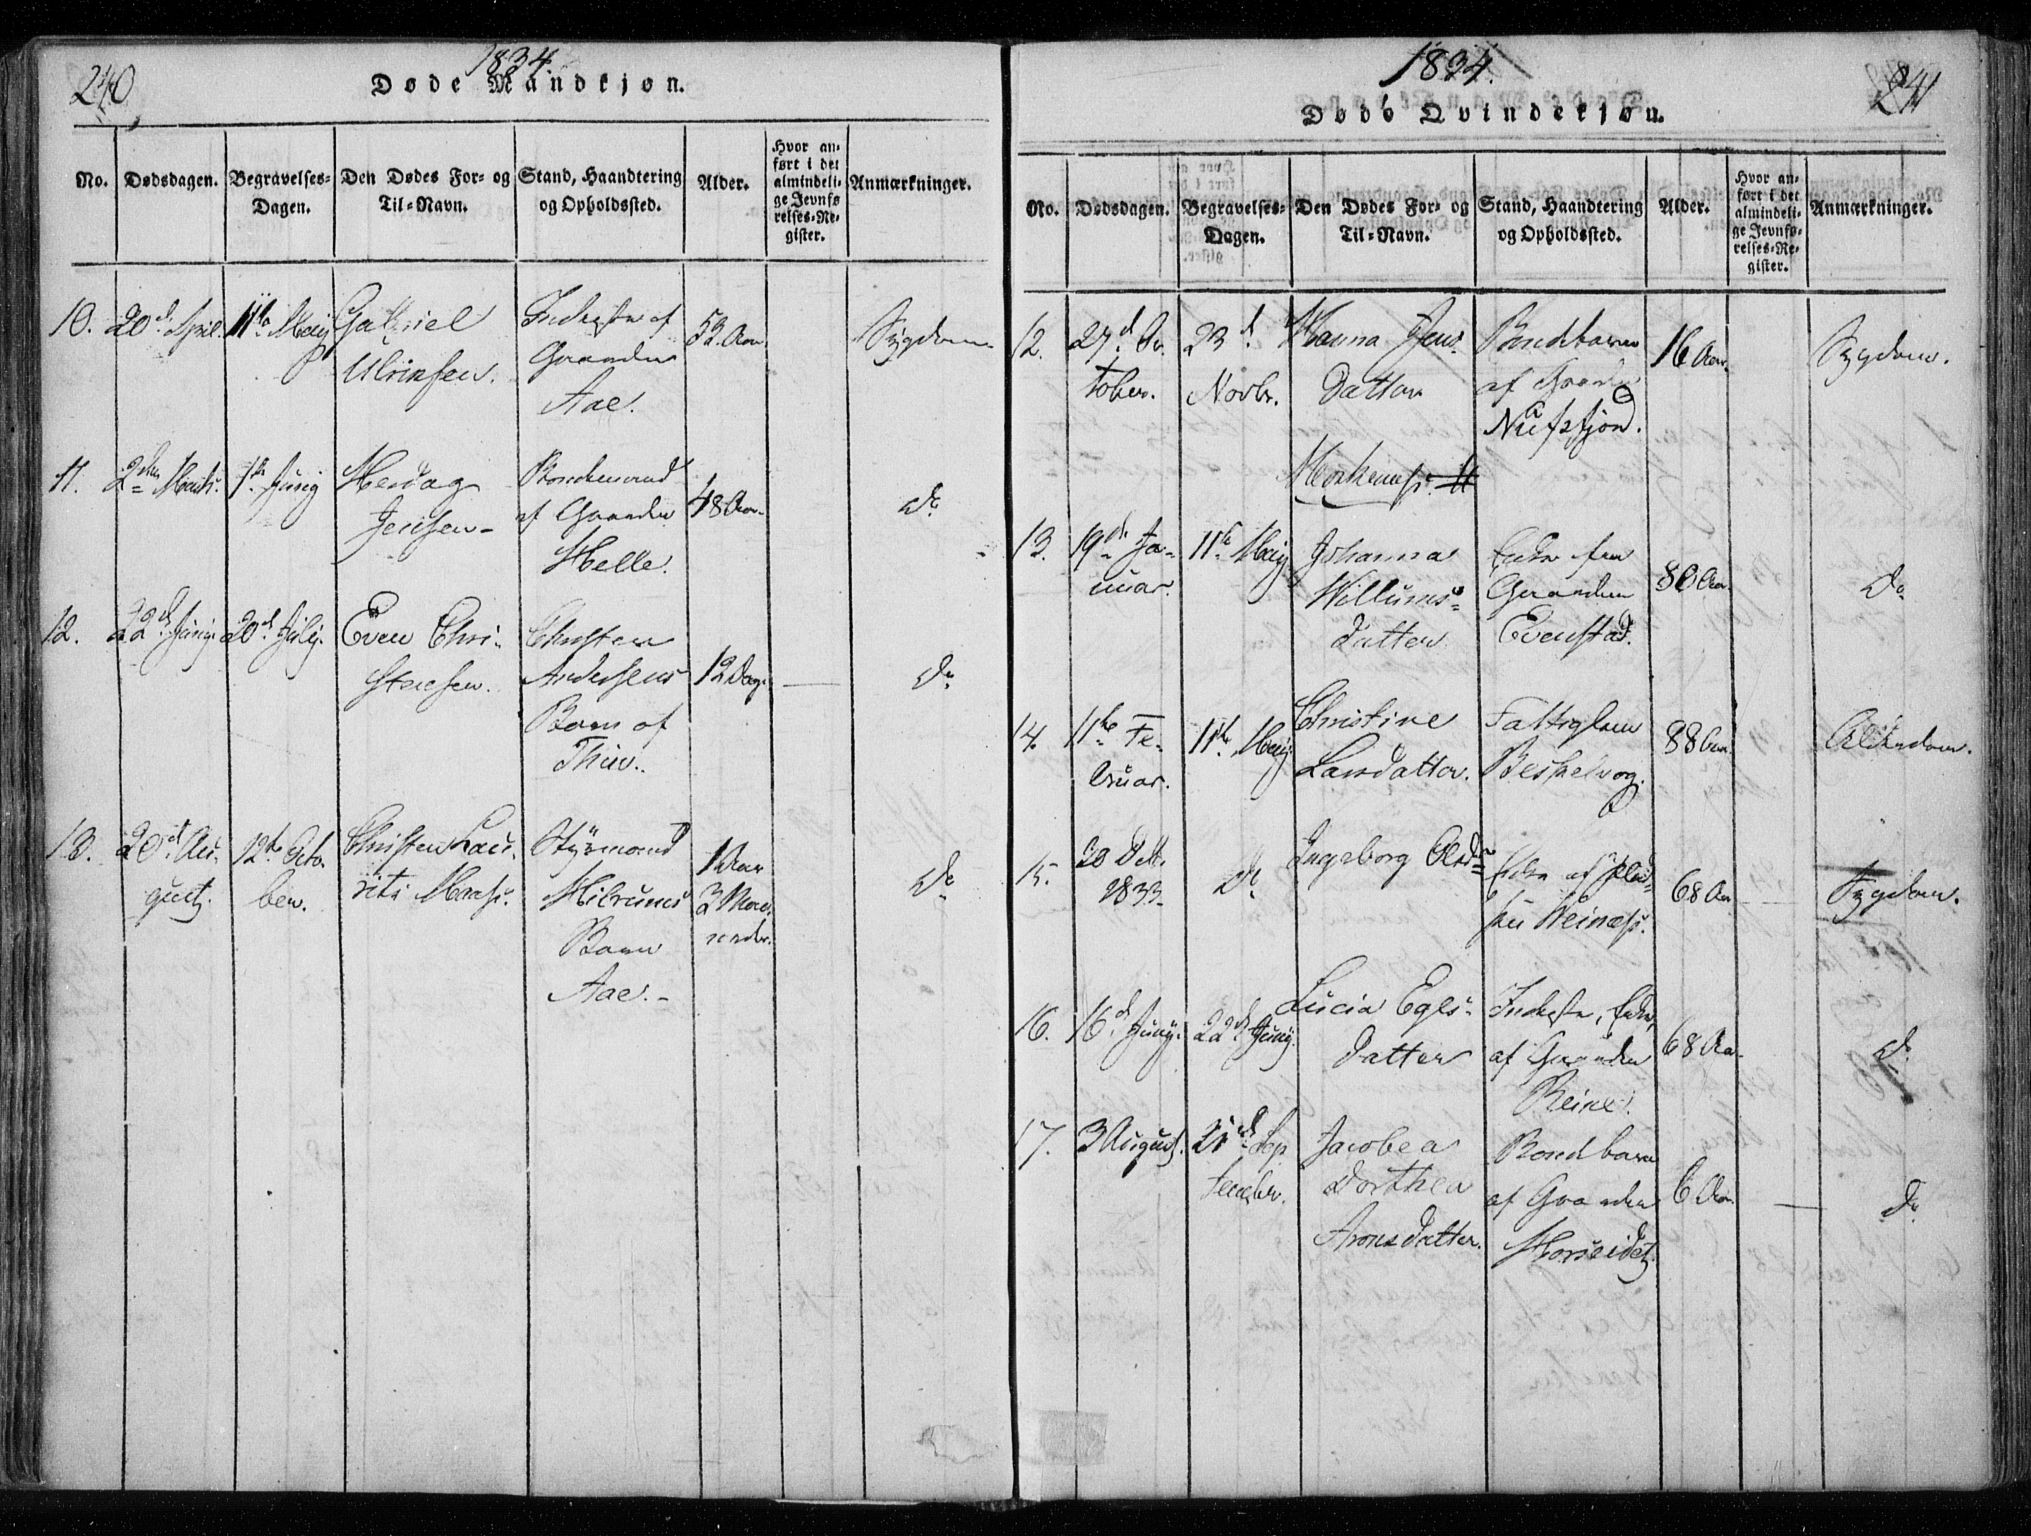 240
1834.
Døde Mandkjøn.
No. Dødsdagen. Begravelses-Dagen. Den Dødes For- og Til-Navn. Stand, Haandtering og Opholdssted. Alder. Hvor anført i det almindelige Jevnførelses-Register. Anmærkninger.
10. 20d April 11te Maij Gabriel Ulriksen. Inderste af Gaarden Aae. 53 Aar Sygdom.
11. 2den Marts. 1ste Junij Meidag Jensen Bondemand af Gaarden Helle. 48 Aar. Do
12. 22d Junij 20d Julij. Even Christensen. Christen Andersens Barn af Thuv. 12 Dage. Do
13. 20d August. 12te October. Christen Laurits Styrmand Barn Aae. 1 Aar 3 Maaneder. Do
1834.
241
Døde Qvindekjøn.
No. Dødsdagen. Begravelses-Dagen. Den Dødes For- og Til-Navn. Stand, Haandtering og Opholdssted. Alder. Hvor anført i det almindelige Jevnførelses-Register. Anmærkninger.
12. 27d October. 23d Novbr. Hanna Jens Datter Bondbarn af Gaarden Nufsfjord. 16 Aar. Sygdom.
13. 19de Januar. 11te Maij Johanna Willums Datter Enke fra Gaarden Evenstad. 80 Aar Do
14. 11te Februar. 11te Maij Christine Larsdatter. Fattiglem Beskelvog. 88 Aar. Alderdom.
15. 20 Dcbr. 1833 Do Ingeborg Olsdr Enke af Pladsen Reinæs. 68 Aar Sygdom.
16. 16d Junij. 22d Junij. Lucia Egls Datter Inderste, Enke, af Gaarden Reine. 68 Aar Do
17. 3 August. 21d September. Jacobea Dorthea Arons Datter. Bondbarn af Gaarden Horseidet. 6 Aar. Do